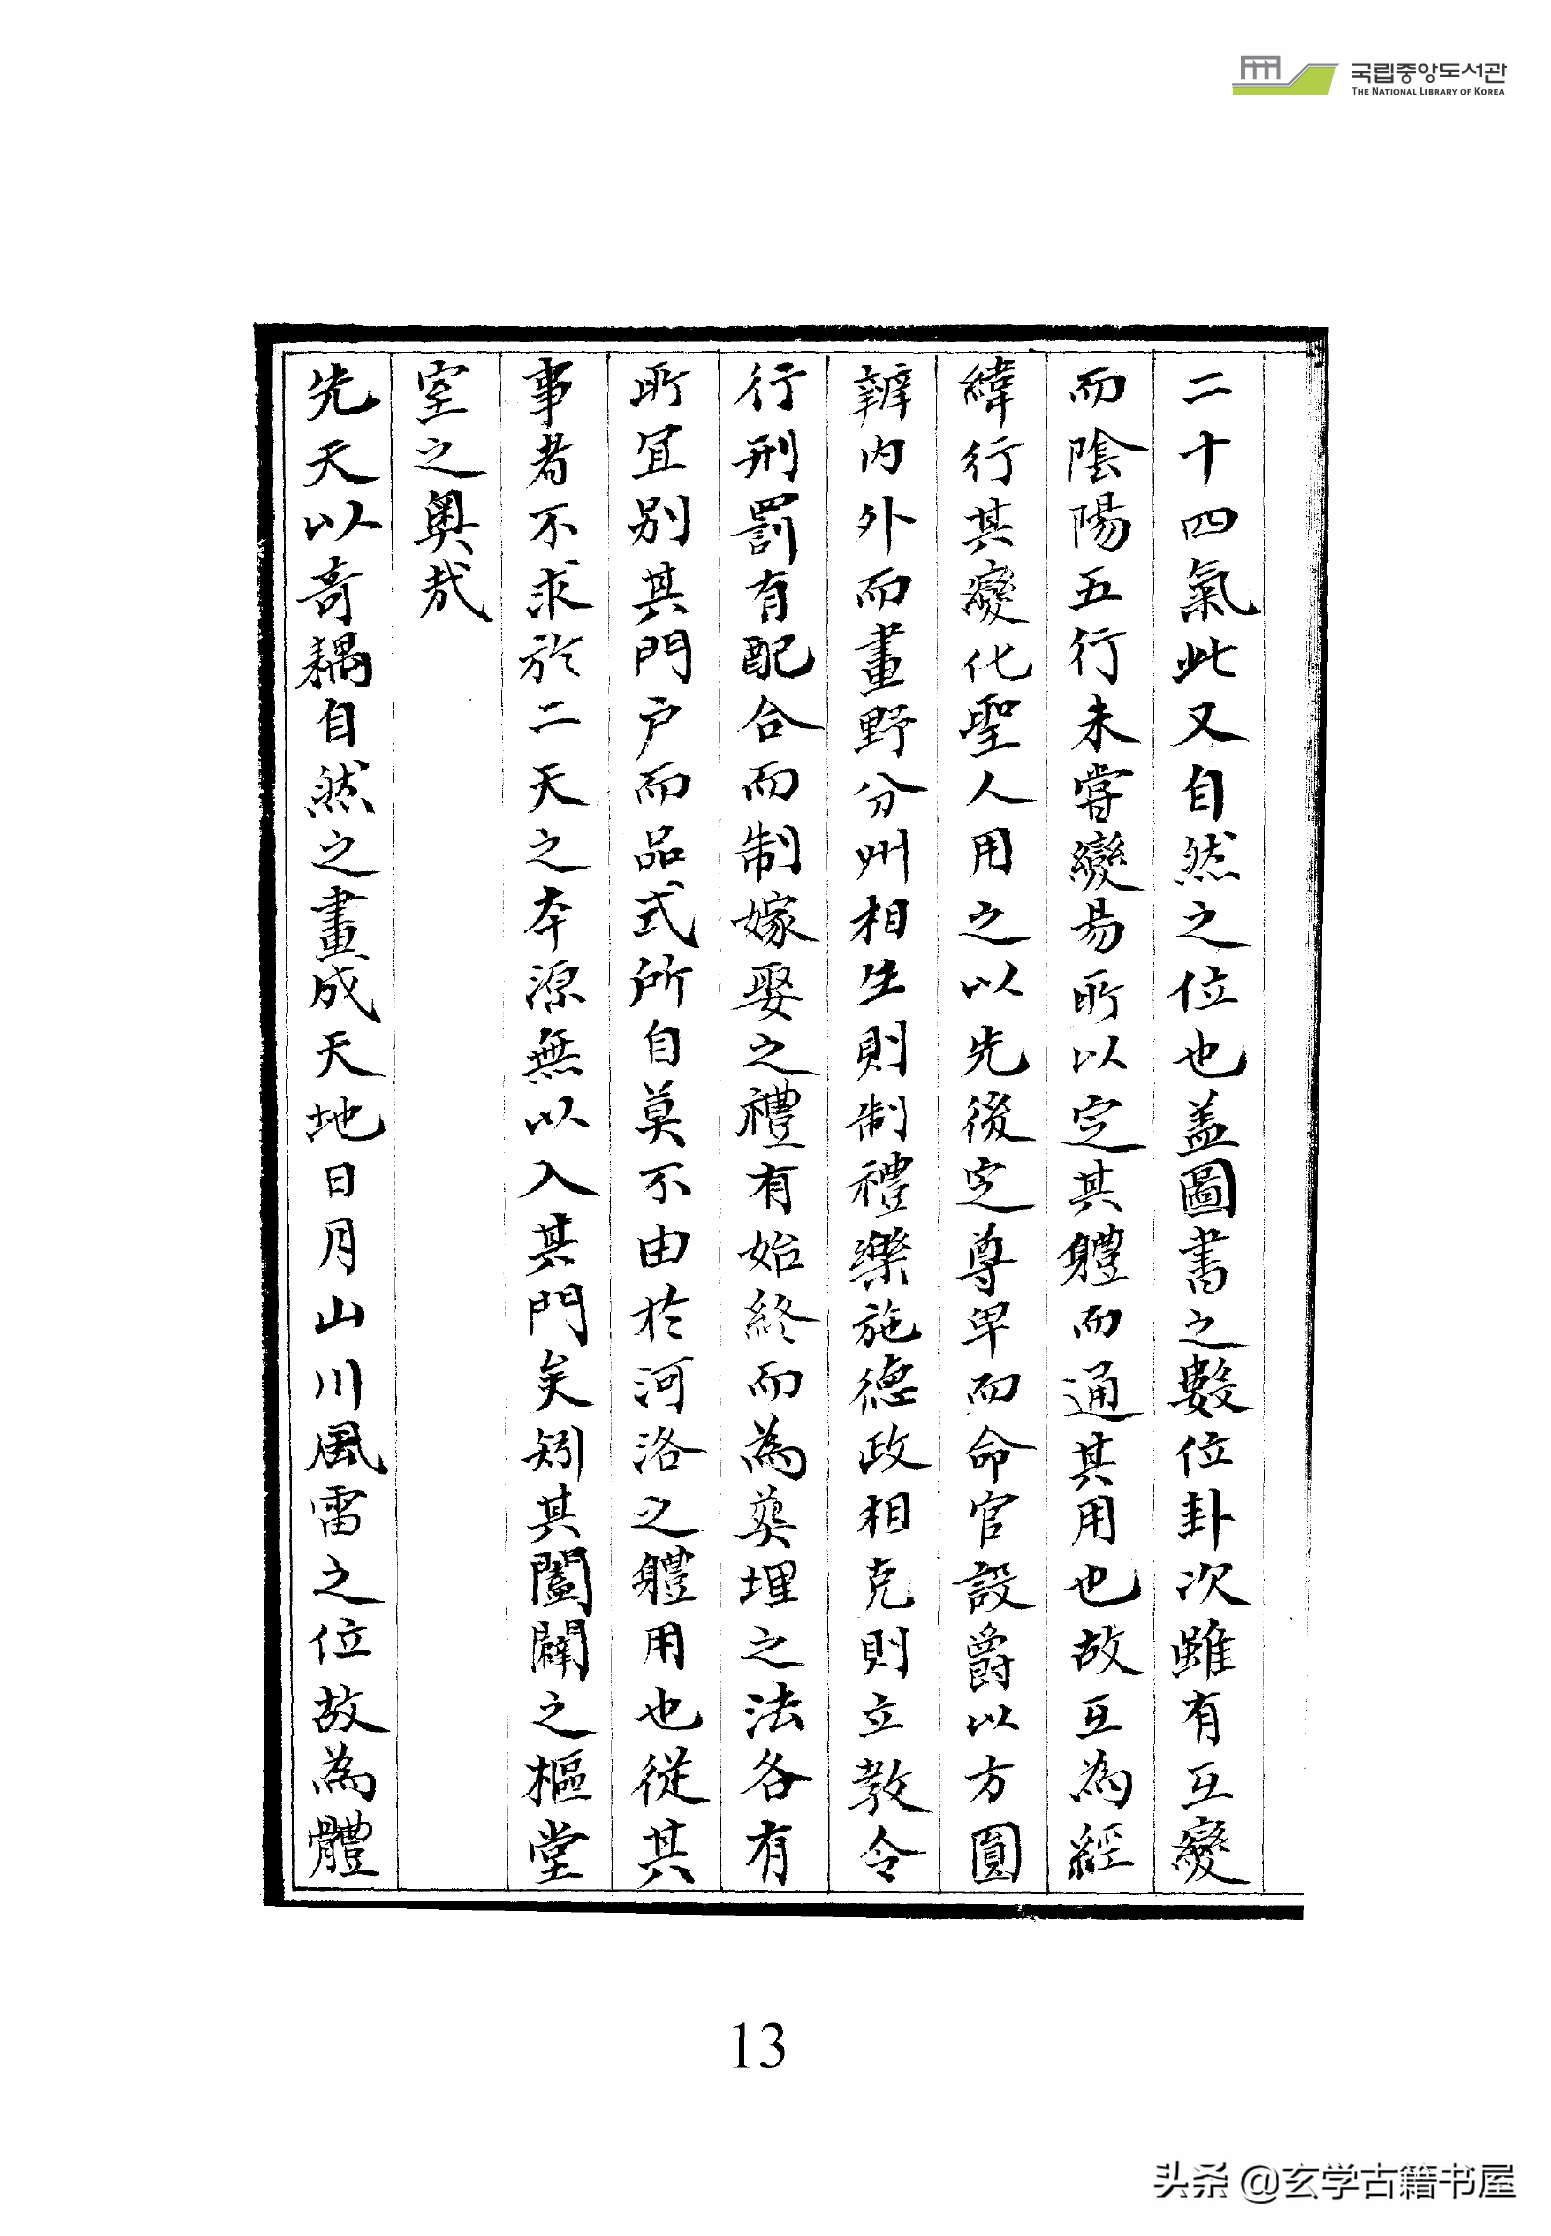 국립중앙도서관
THE NATIONAL LIBRARY OF KOREA
二十四氣此又自然之位也盖圖書之數位卦次雖有互變
而陰陽五行未嘗變易所以定其體而通其用也故互為經
緯行其變化聖人用之以先後定尊卑而命官設爵以方圓
辨內外而畫野分州相生則制禮樂施德政相克則立教令
行刑罰有配合而制嫁娶之禮有始終而為葬埋之法各有
所宜別其門戶而品式所自莫不由於河洛之體用也從其
事者不求於二天之本源無以入其門矣矧其闔闢之樞堂
室之奧哉
先天以奇耦自然之畫成天地日月山川風雷之位故為體
13
头条 @玄学古籍书屋